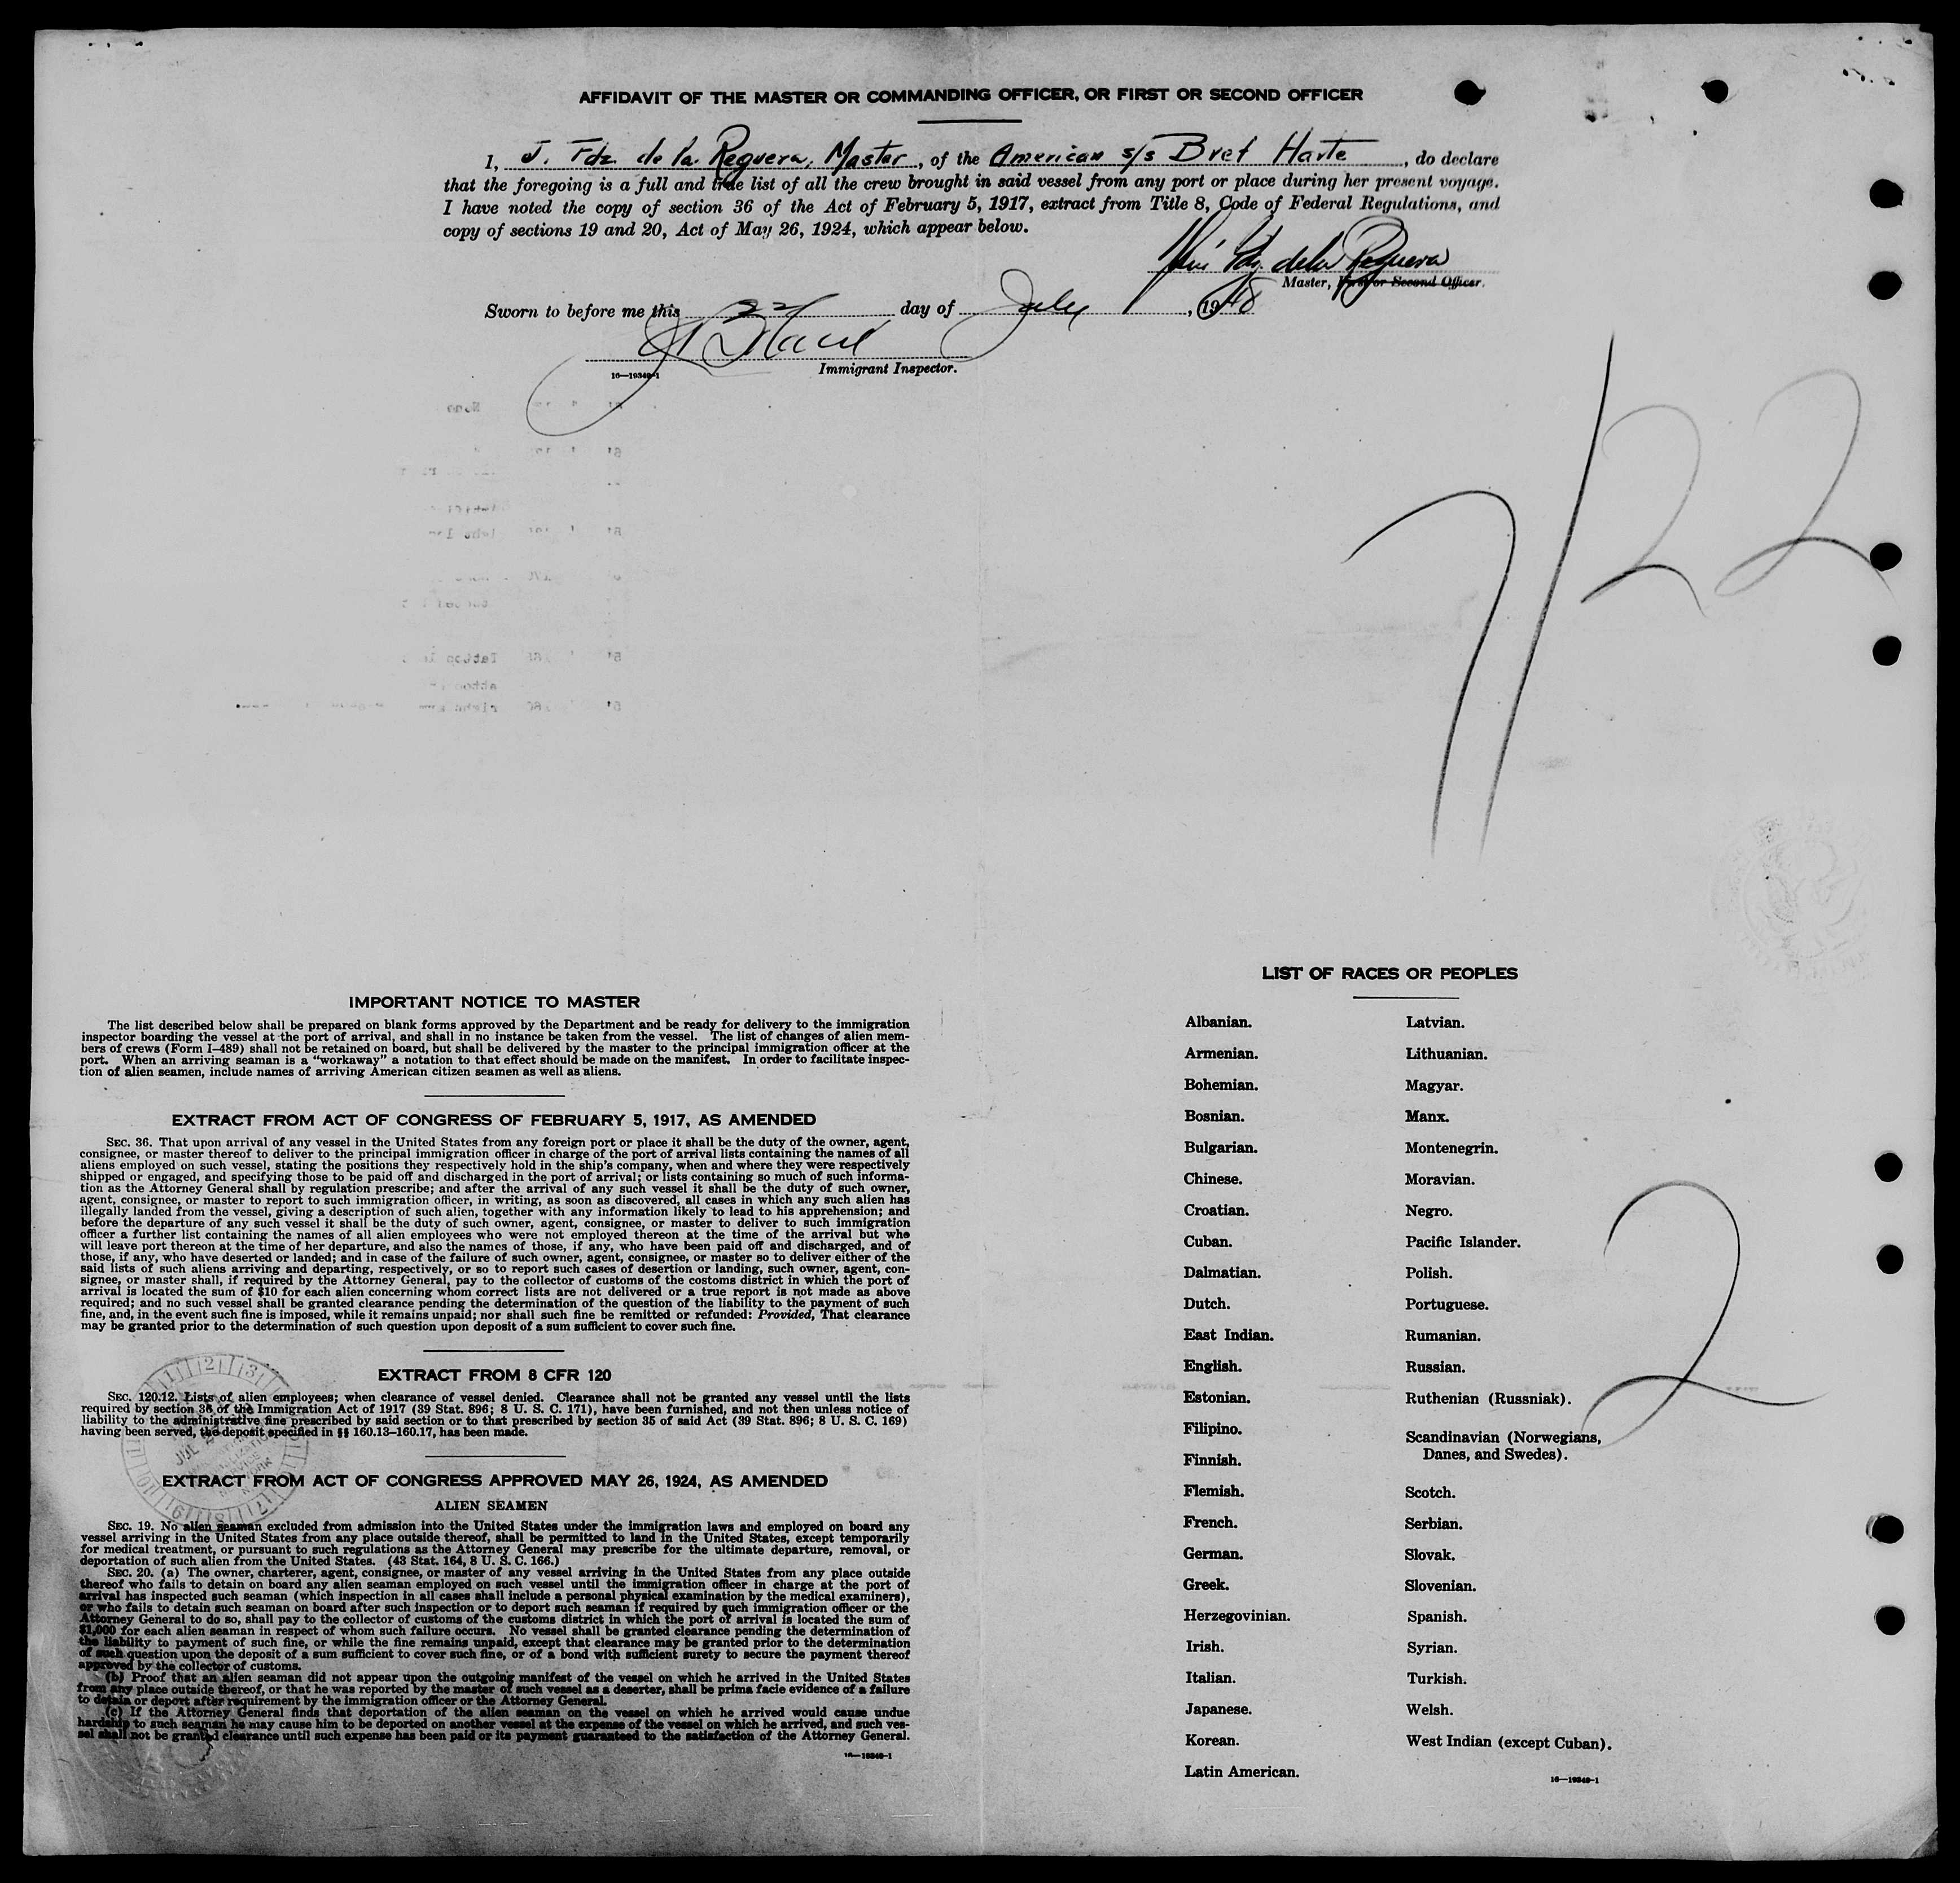 AFFIDAVIT OF THE MASTER OR COMMANDING OFFICER, OR FIRST OR SECOND OFFICER
I, J. Fdz de la Reguera, Master, of the American s/s Bret Harte, do declare
that the foregoing is a full and true list of all the crew brought in said vessel from any port or place during her present voyage.
I have noted the copy of section 36 of the Act of February 5, 1917, extract from Title 8, Code of Federal Regulations, and
copy of sections 19 and 20, Act of May 26, 1924, which appear below.
Fdz. de la Reguera
Master, First or Second Officer.
Sworn to before me this 22 day of July, 1948
Immigrant Inspector.
16—19349-1
7/22
IMPORTANT NOTICE TO MASTER
The list described below shall be prepared on blank forms approved by the Department and be ready for delivery to the immigration
inspector boarding the vessel at the port of arrival, and shall in no instance be taken from the vessel. The list of changes of alien mem-
bers of crews (Form I-489) shall not be retained on board, but shall be delivered by the master to the principal immigration officer at the
port. When an arriving seaman is a "workaway" a notation to that effect should be made on the manifest. In order to facilitate inspec-
tion of alien seamen, include names of arriving American citizen seamen as well as aliens.
EXTRACT FROM ACT OF CONGRESS OF FEBRUARY 5, 1917, AS AMENDED
SEC. 36. That upon arrival of any vessel in the United States from any foreign port or place it shall be the duty of the owner, agent,
consignee, or master thereof to deliver to the principal immigration officer in charge of the port of arrival lists containing the names of all
aliens employed on such vessel, stating the positions they respectively hold in the ship's company, when and where they were respectively
shipped or engaged, and specifying those to be paid off and discharged in the port of arrival; or lists containing so much of such informa-
tion as the Attorney General shall by regulation prescribe; and after the arrival of any such vessel it shall be the duty of such owner,
agent, consignee, or master to report to such immigration officer, in writing, as soon as discovered, all cases in which any such alien has
illegally landed from the vessel, giving a description of such alien, together with any information likely to lead to his apprehension; and
before the departure of any such vessel it shall be the duty of such owner, agent, consignee, or master to deliver to such immigration
officer a further list containing the names of all alien employees who were not employed thereon at the time of the arrival but who
will leave port thereon at the time of her departure, and also the names of those, if any, who have been paid off and discharged, and of
those, if any, who have deserted or landed; and in case of the failure of such owner, agent, consignee, or master so to deliver either of the
said lists of such aliens arriving and departing, respectively, or so to report such cases of desertion or landing, such owner, agent, con-
signee, or master shall, if required by the Attorney General, pay to the collector of customs of the costoms district in which the port of
arrival is located the sum of $10 for each alien concerning whom correct lists are not delivered or a true report is not made as above
required; and no such vessel shall be granted clearance pending the determination of the question of the liability to the payment of such
fine, and, in the event such fine is imposed, while it remains unpaid; nor shall such fine be remitted or refunded: Provided, That clearance
may be granted prior to the determination of such question upon deposit of a sum sufficient to cover such fine.
EXTRACT FROM 8 CFR 120
SEC. 120.12. Lists of alien employees; when clearance of vessel denied. Clearance shall not be granted any vessel until the lists
required by section 36 of the Immigration Act of 1917 (39 Stat. 896; 8 U. S. C. 171), have been furnished, and not then unless notice of
liability to the administrative fine prescribed by said section or to that prescribed by section 35 of said Act (39 Stat. 896; 8 U. S. C. 169)
having been served, the deposit specified in §§ 160.13–160.17, has been made.
EXTRACT FROM ACT OF CONGRESS APPROVED MAY 26, 1924, AS AMENDED
ALIEN SEAMEN
SEC. 19. No alien seaman excluded from admission into the United States under the immigration laws and employed on board any
vessel arriving in the United States from any place outside thereof, shall be permitted to land in the United States, except temporarily
for medical treatment, or pursuant to such regulations as the Attorney General may prescribe for the ultimate departure, removal, or
deportation of such alien from the United States. (43 Stat. 164, 8 U. S. C. 166.)
SEC. 20. (a) The owner, charterer, agent, consignee, or master of any vessel arriving in the United States from any place outside
thereof who fails to detain on board any alien seaman employed on such vessel until the immigration officer in charge at the port of
arrival has inspected such seaman (which inspection in all cases shall include a personal physical examination by the medical examiners),
or who fails to detain such seaman on board after such inspection or to deport such seaman if required by such immigration officer or the
Attorney General to do so, shall pay to the collector of customs of the customs district in which the port of arrival is located the sum of
$1,000 for each alien seaman in respect of whom such failure occurs. No vessel shall be granted clearance pending the determination of
the liability to payment of such fine, or while the fine remains unpaid, except that clearance may be granted prior to the determination
of such question upon the deposit of a sum sufficient to cover such fine, or of a bond with sufficient surety to secure the payment thereof
approved by the collector of customs.
(b) Proof that an alien seaman did not appear upon the outgoing manifest of the vessel on which he arrived in the United States
from any place outside thereof, or that he was reported by the master of such vessel as a deserter, shall be prima facie evidence of a failure
to detain or deport after requirement by the immigration officer or the Attorney General.
(c) If the Attorney General finds that deportation of the alien seaman on the vessel on which he arrived would cause undue
hardship to such seaman he may cause him to be deported on another vessel at the expense of the vessel on which he arrived, and such ves-
sel shall not be granted clearance until such expense has been paid or its payment guaranteed to the satisfaction of the Attorney General.
16—19349-1
LIST OF RACES OR PEOPLES
Albanian.
Armenian.
Bohemian.
Bosnian.
Bulgarian.
Chinese.
Croatian.
Cuban.
Dalmatian.
Dutch.
East Indian.
English.
Estonian.
Filipino.
Finnish.
Flemish.
French.
German.
Greek.
Herzegovinian.
Irish.
Italian.
Japanese.
Korean.
Latin American.
Latvian.
Lithuanian.
Magyar.
Manx.
Montenegrin.
Moravian.
Negro.
Pacific Islander.
Polish.
Portuguese.
Rumanian.
Russian.
Ruthenian (Russniak).
Scandinavian (Norwegians,
Danes, and Swedes).
Scotch.
Serbian.
Slovak.
Slovenian.
Spanish.
Syrian.
Turkish.
Welsh.
West Indian (except Cuban).
16—19349-1
2